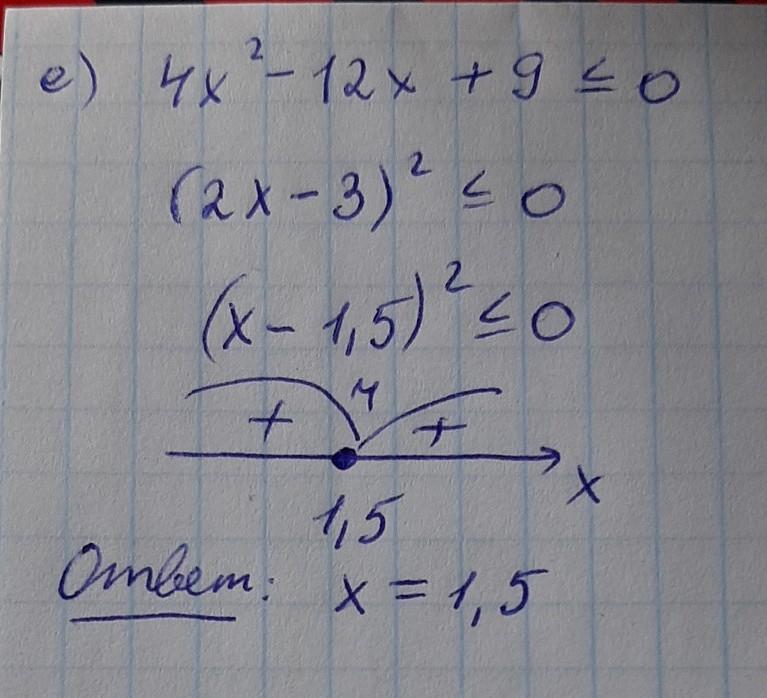 е) 4x² - 12x + 9 ≤ 0
(2x - 3)² ≤ 0
(x - 1,5)² ≤ 0
ч
+ +
x
1,5
Ответ: x = 1,5